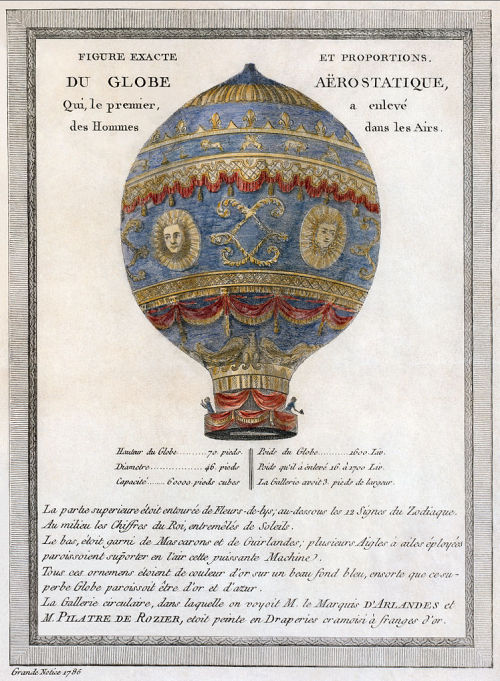 FIGURE EXACTE ET PROPORTIONS,
DU GLOBE AËROSTATIQUE,
Qui, le premier, a enlevé
des Hommes dans les Airs.
Hauteur du Globe..........70 pieds.
Diametre..................46 pieds
Capacité......60000 pieds cubes
Poids du Globe..........1600 Liv.
Poids qu'il à énlevé 16 à 1700 Liv.
La Gallerie avoit 3. pieds de largeur.
La partie superieure étoit entourée de Fleurs-de-lys; au-dessous les 12 Signes du Zodiaque.
Au milieu les Chiffres du Roi, entremêlés de Soleils.
Le bas, étoit garni de Mascarons et de Guirlandes; plusieurs Aigles à ailes éployées
paroissoient supórter en l'air cette puissante Machine).
Tous ces ornemens étoient de couleur d'or sur un beau fond bleu, ensorte que ce su-
perbe Globe paroissoit être d'or et d'azur.
La Gallerie circulaire, dans laquelle on voyoit M. le Marquis D'ARLANDES et
M. PILATRE DE ROZIER, etoit peinte en Draperies cramoisi à franges d'or.
Grande Notice 1786